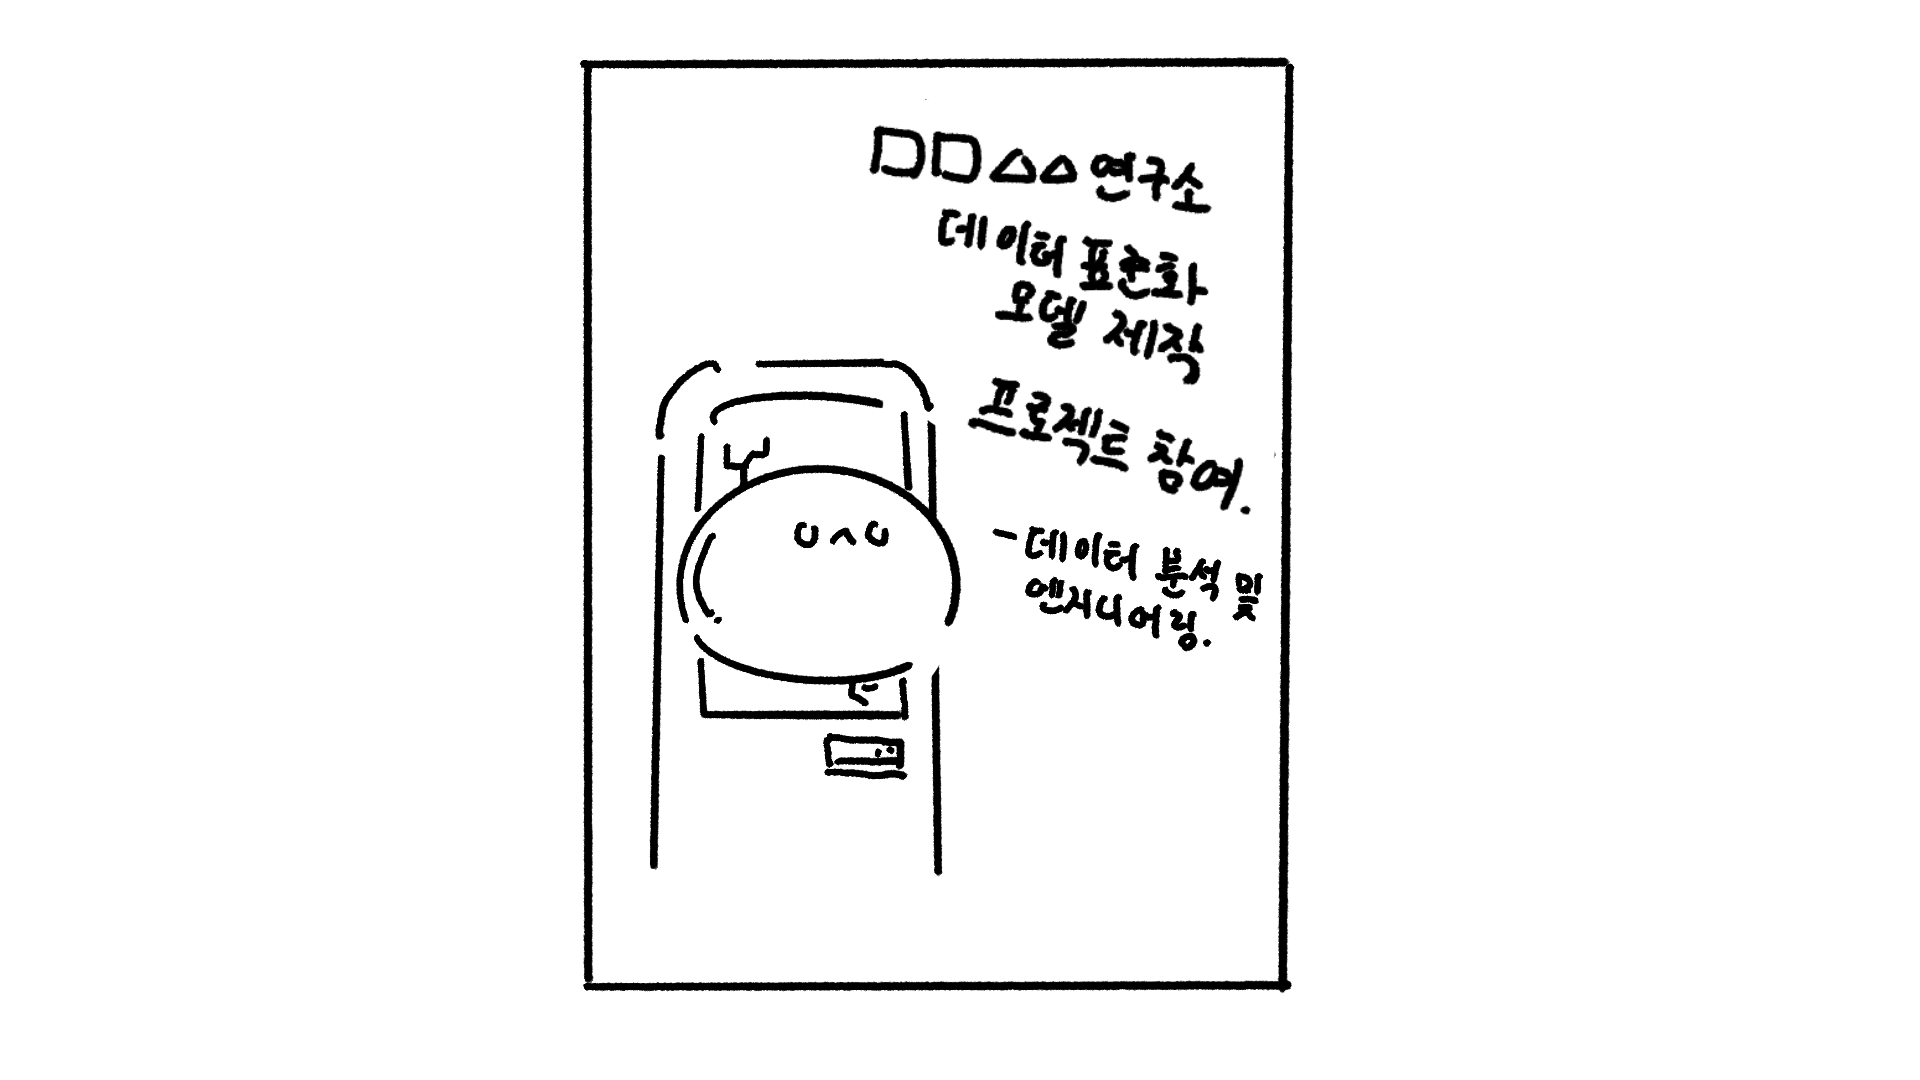 □□△△ 연구소
데이터 표준화
모델 제작
프로젝트 참여.
- 데이터 분석 및
엔지니어링.